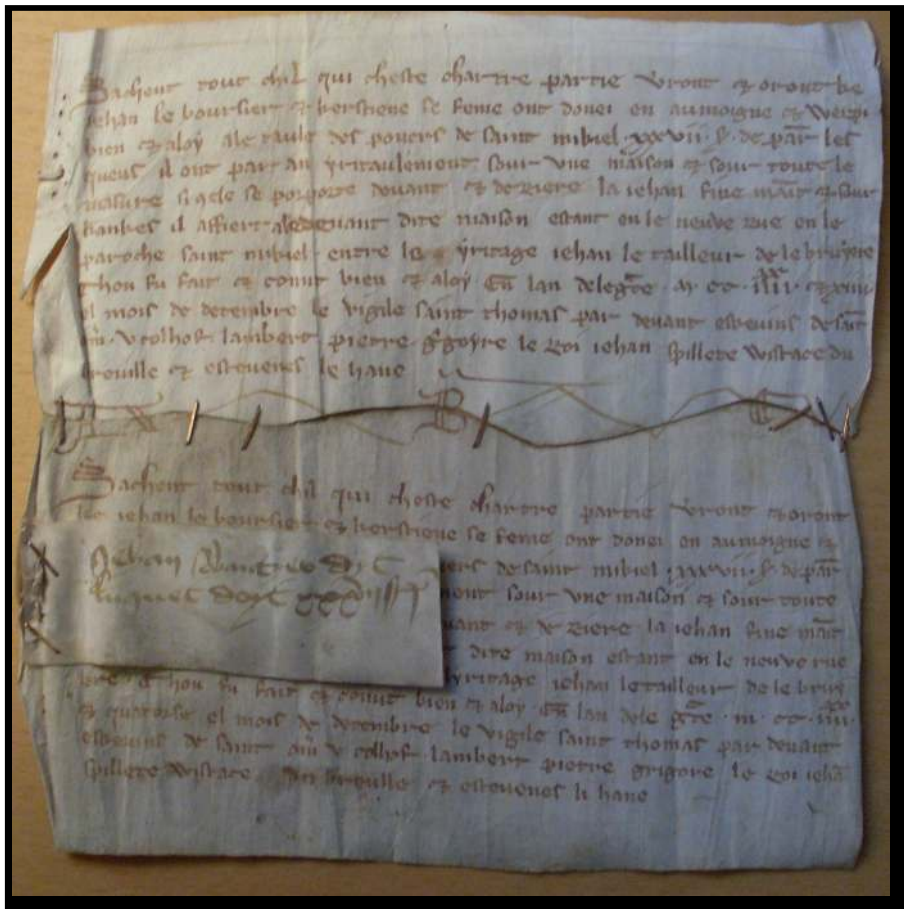 Sachent tout chil qui cheste chartre partie vront & oront ke
iehan le boursier & kerstiene se feme ont donei en aumoigne & werpi
bien & a loy a le taule des povers de saint mihiel xxxvii s. de par les
queus il ont par an yritaulement sour une maison & sour toute le
masure si acle se porporte devant & deriere la iehan fine maint & sour
kankes il affiert a le devant dite maison estant en le neuve rue en le
paroche saint mihiel entre le yritage iehan le tailleur de le bruyere
Chou fu fait & conut bien & a loy En lan dele gce m cc iiii xx & xiiii
el mois de decembre le vigile saint thomas par devant eskevins de saint
lambert pietre le roi iehan spillete wistace du
breuille & estevenes le have
A B C
Sachent tout chil qui cheste chartre partie vront & oront
ke iehan le boursier & kerstiene se feme ont donei en aumoigne &
de saint mihiel xxxvii s. de par
sour une maison & sour toute
& deriere la iehan fine maint
dite maison estant en le neuve rue
yritage iehan le tailleur de le bruy
ere Chou fu fait & conut bien & a loy En lan dele gce m cc iiii xx
& quatorse el mois de decembre le vigile saint thomas par devant
eskevins de saint lambert pietre grigore le roi iehan
spillete wistace du breuille & estevenes li have
Jehan